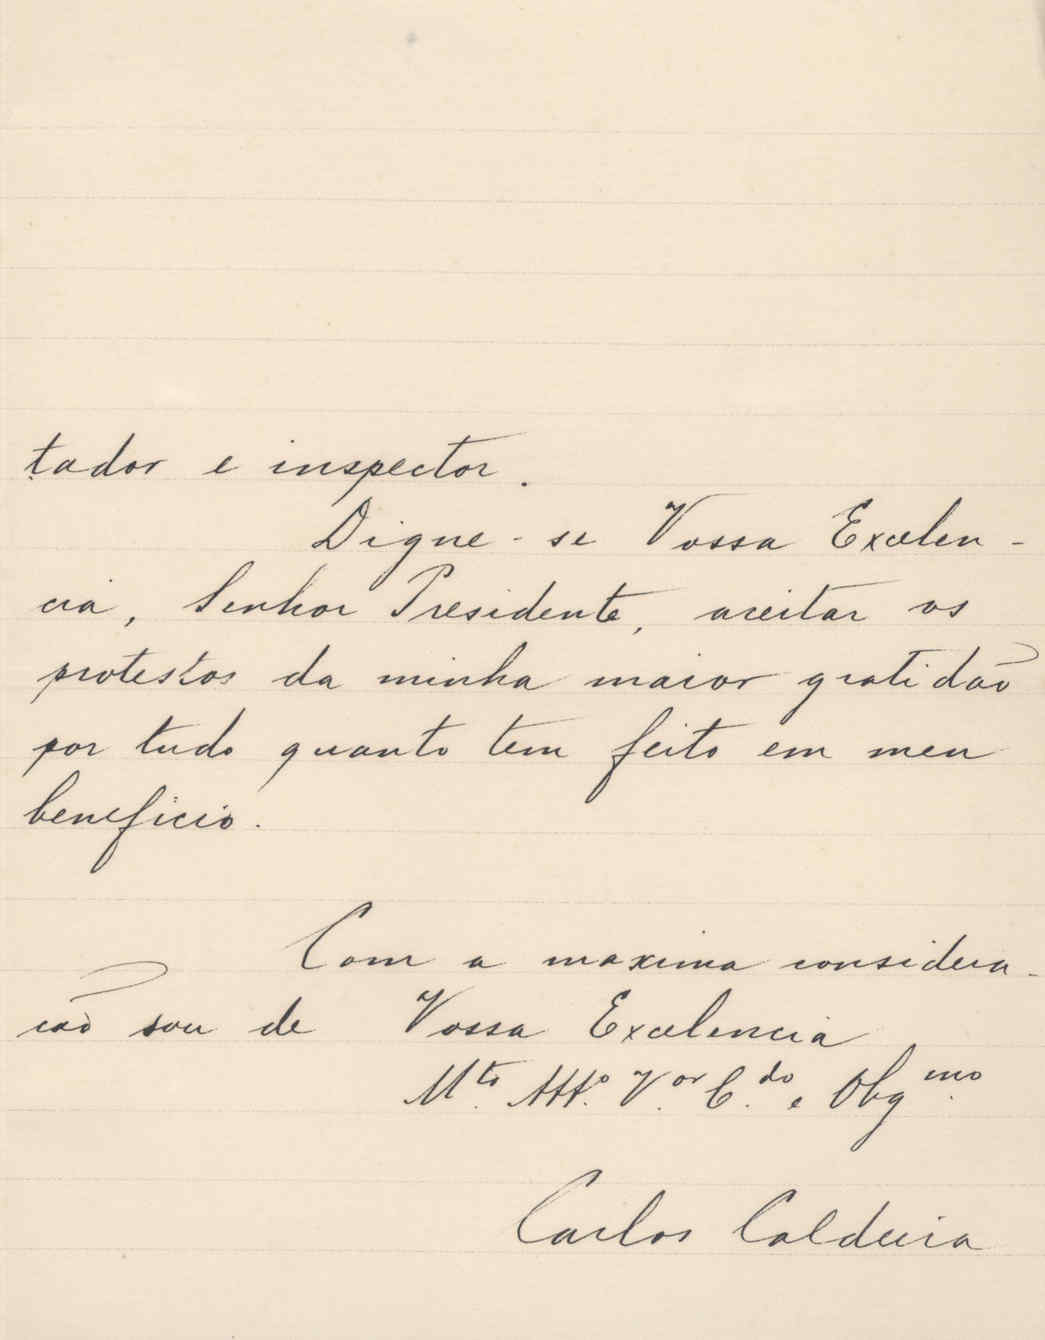 tador e inspector.
Digne-se Vossa Excelen-
cia, Senhor Presidente, aceitar os
protestos da minha maior gratidão
por tudo quanto tem feito em meu
beneficio.
Com a maxima considera-
cão sou de Vossa Excelencia
M.to Att.o V.or C.do e Obg.mo
Carlos Caldeira